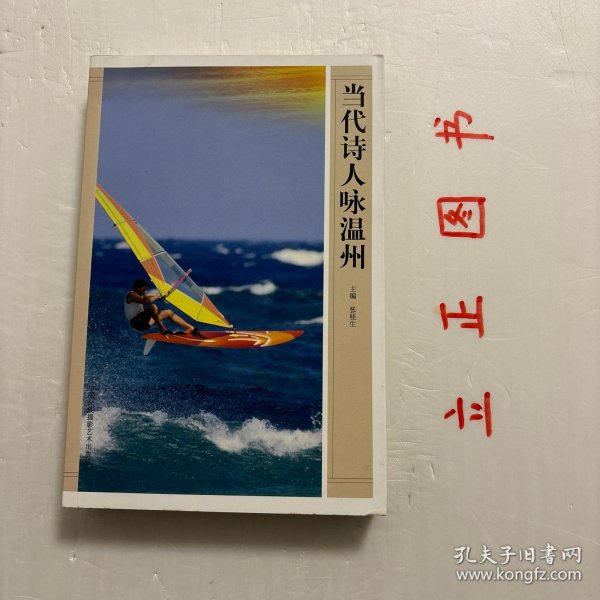 当代诗人咏温州
主编 张桂生
摄影艺术出版社
立正图书
孔夫子旧书网
www.kongfz.com